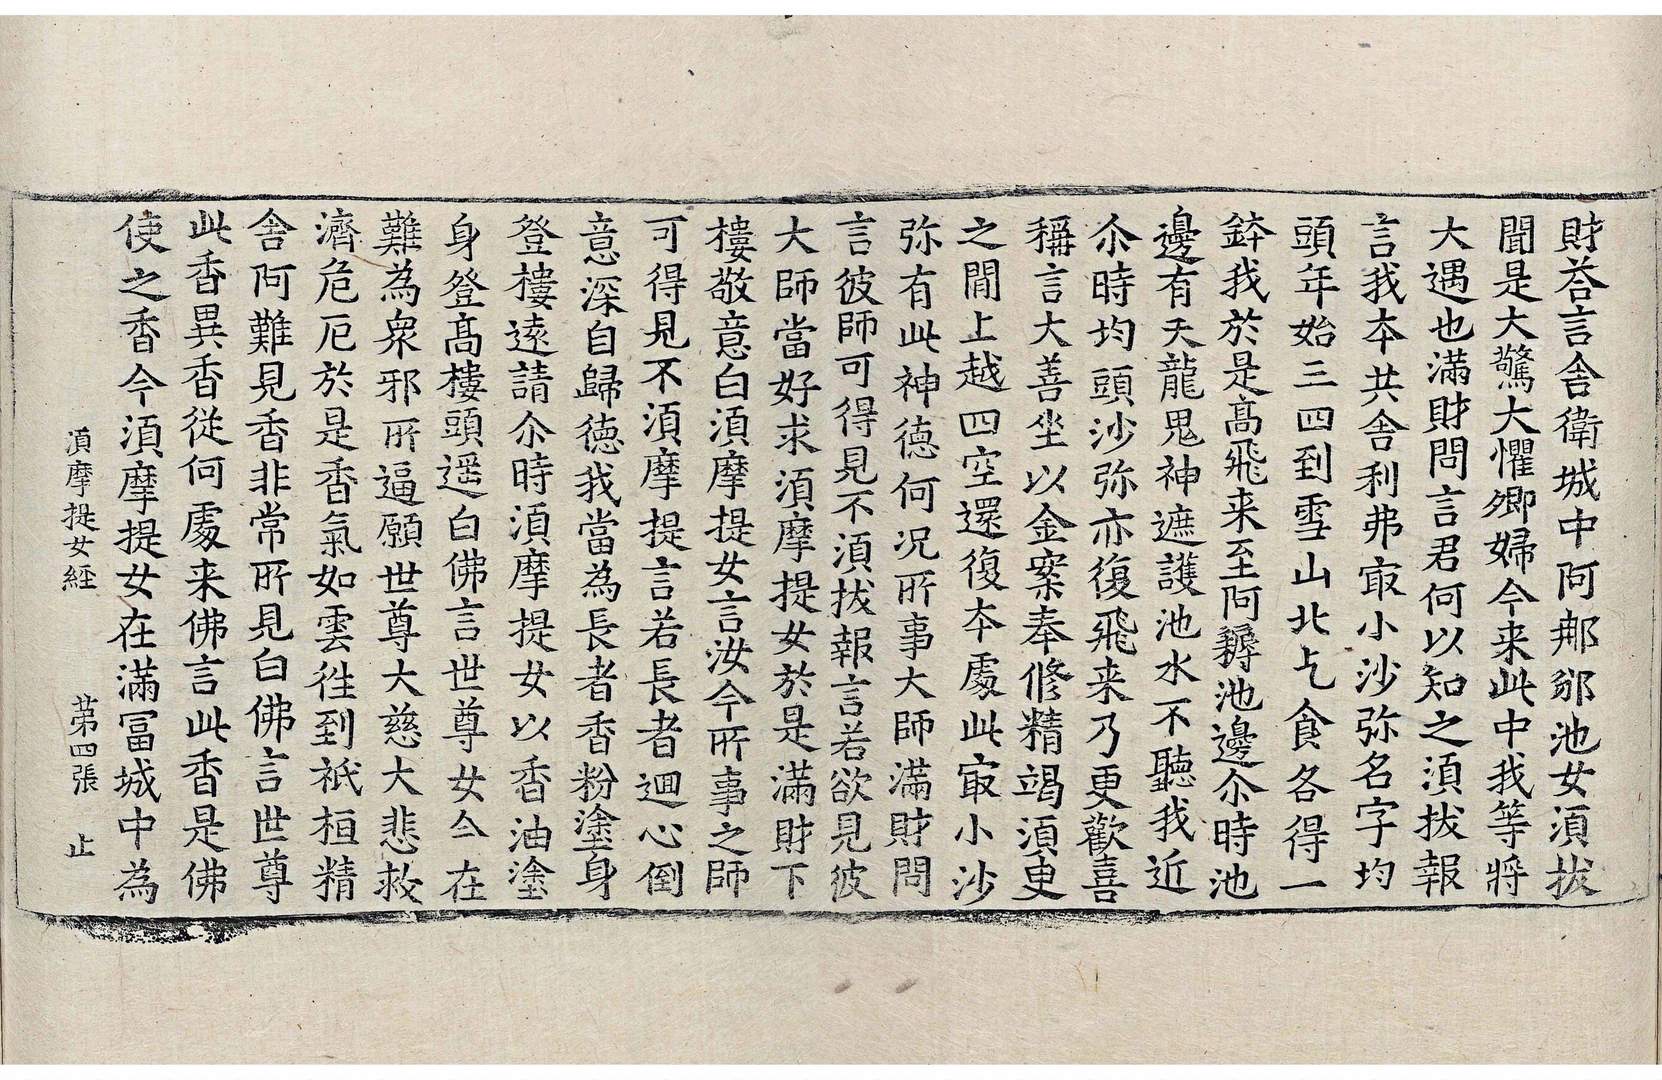 財荅言舎衛城中阿𨚗邠池女湏拔
聞是大驚大懼卿婦今来此中我等將
大遇也滿財問言君何以知之湏拔報
言我本共舎利弗㝡小沙弥名字均
頭年始三四到雪山北乞食各得一
鉢我於是髙飛来至阿耨池邊尒時池
邊有天龍鬼神遮護池水不聽我近
尒時均頭沙弥亦復飛来乃更歡喜
稱言大善坐以金案奉修精竭湏臾
之閒上越四空還復本處此㝡小沙
弥有此神德何况所事大師滿財問
言彼師可得見不湏拔報言若欲見彼
大師當好求湏摩提女於是滿財下
樓敬意白湏摩提女言汝今所事之師
可得見不湏摩提言若長者迴心倒
意深自歸德我當為長者香粉塗身
登樓遠請尒時湏摩提女以香油塗
身登髙樓頭遥白佛言世尊女今在
難為衆邪所逼願世尊大慈大悲救
濟危厄於是香氣如雲徃到祇桓精
舎阿難見香非常所見白佛言世尊
此香異香從何處来佛言此香是佛
使之香今湏摩提女在滿冨城中為
湏摩提女經　第四張　止